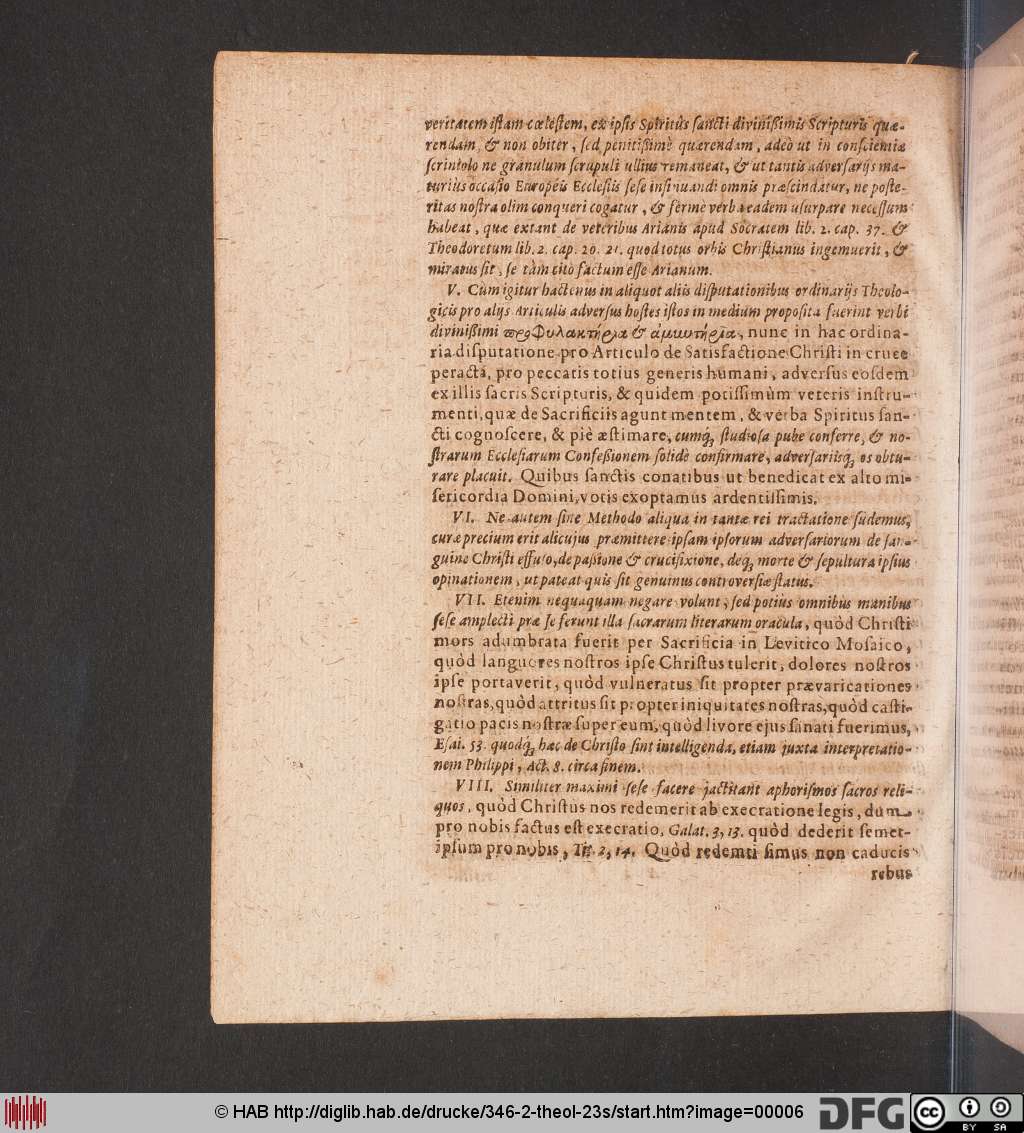 veritatem istam cœlestem, ex ipsis Spiritûs sancti divinißimis Scripturis quæ-
rendam, & non obiter, sed penitißimè quærendam, adeò ut in conscientiæ
scriniolo ne granulum scrupuli ullius remaneat, & ut tantis adversarijs ma-
turiùs occasio Europæis Ecclesiis sese insinuandi omnis præscindatur, ne poste-
ritas nostra olim conqueri cogatur, & fermè verba eadem usurpare necessum
habeat, quæ extant de veteribus Arianis apud Socratem lib. 2. cap. 37. &
Theodoretum lib. 2. cap. 20. 21. quod totus orbis Christianus ingemuerit, &
miratus sit, se tàm citò factum esse Arianum.
V. Cùm igitur hactenus in aliquot aliis disputationibus ordinarijs Theolo-
gicis pro alijs Articulis adversus hostes istos in medium proposita fuerint verbi
divinißimi προφυλακτήρια & ἀμυντήρια, nunc in hac ordina-
ria disputatione pro Articulo de Satisfactione Christi in cruce
peractâ, pro peccatis totius generis humani, adversus eosdem
ex illis sacris Scripturis, & quidem potissimùm veteris instru-
menti, quæ de Sacrificiis agunt mentem, & verba Spiritus san-
cti cognoscere, & piè æstimare, cumq́; studiosa pube conferre, & no-
strarum Ecclesiarum Confeßionem solidè confirmare, adversariisq́; os obtu-
rare placuit. Quibus sanctis conatibus ut benedicat ex alto mi-
sericordia Domini, votis exoptamus ardentissimis.
VI. Ne autem sine Methodo aliqua in tantæ rei tractatione sudemus,
curæ precium erit alicujus præmittere ipsam ipsorum adversariorum de san-
guine Christi effuso, de paßione & crucifixione, deq́; morte & sepultura ipsius
opinationem, ut pateat quis sit genuinus controversiæ status.
VII. Etenim nequaquam negare volunt, sed potius omnibus manibus
sese amplecti præ se ferunt illa sacrarum literarum oracula, quòd Christi
mors adumbrata fuerit per Sacrificia in Levitico Mosaico,
quòd languores nostros ipse Christus tulerit, dolores nostros
ipse portaverit, quòd vulneratus sit propter prævaricationes
nostras, quòd attritus sit propter iniquitates nostras, quòd casti-
gatio pacis nostræ super eum, quòd livore ejus sanati fuerimus,
Esai. 53. quodq́; hæc de Christo sint intelligenda, etiam juxta interpretatio-
nem Philippi, Act. 8. circa finem.
VIII. Similiter maximi sese facere jactitant aphorismos sacros reli-
quos, quòd Christus nos redemerit ab execratione legis, dum
pro nobis factus est execratio, Galat. 3, 13. quòd dederit semet-
ipsum pro nobis, Tit. 2, 14. Quòd redemti simus non caducis
rebus
© HAB http://diglib.hab.de/drucke/346-2-theol-23s/start.htm?image=00006
DFG
cc BY SA